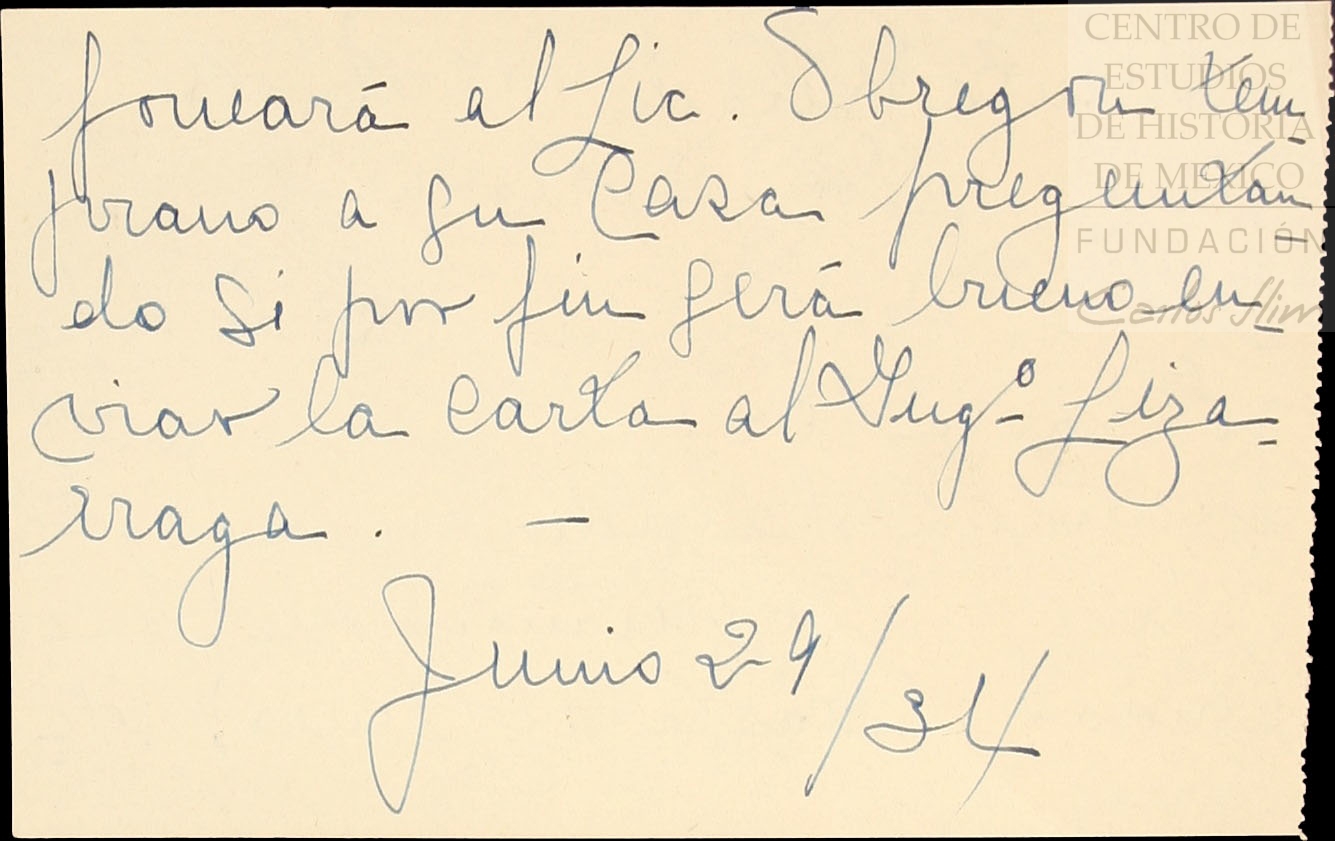 foneará al Lic. Obregon tem-
prano a su casa preguntan-
do si por fin será bueno en-
viar la carta al Ingº Liza-
rraga. —
Junio 29/34
CENTRO DE
ESTUDIOS
DE HISTORIA
DE MÉXICO
FUNDACIÓN
Carlos Slim